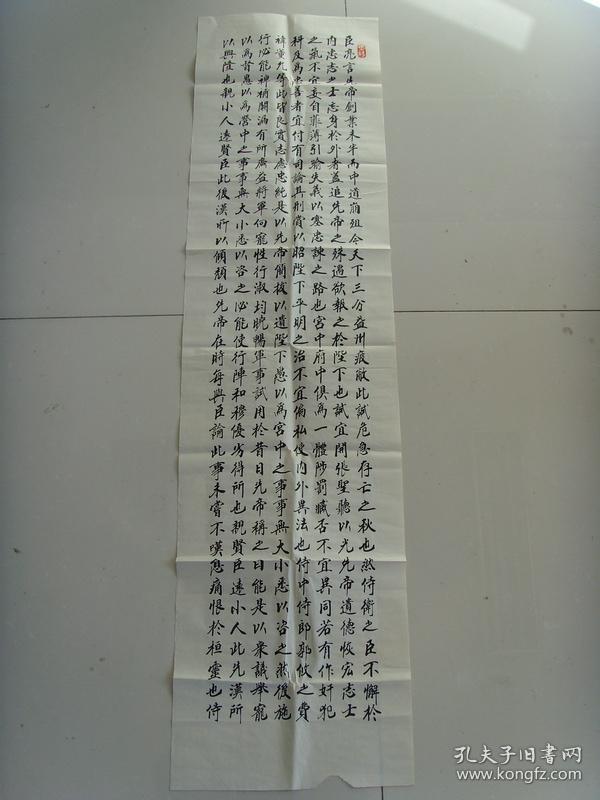 臣亮言先帝創業未半而中道崩殂今天下三分益州疲敝此誠危急存亡之秋也然侍衛之臣不懈於
内忠志之士忘身於外者蓋追先帝之殊遇欲報之於陛下也誠宜開張聖聽以光先帝遺德恢宏志士
之氣不宜妄自菲薄引喻失義以塞忠諫之路也宮中府中俱為一體陟罰臧否不宜異同若有作奸犯
科及為忠善者宜付有司論其刑賞以昭陛下平明之治不宜偏私使内外異法也侍中侍郎郭攸之費
禕董允等此皆良實志慮忠純是以先帝簡拔以遺陛下愚以為宮中之事事無大小悉以咨之然後施
行必能裨補闕漏有所廣益將軍向寵性行淑均曉暢軍事試用於昔日先帝稱之曰能是以衆議舉寵
以為督愚以為營中之事事無大小悉以咨之必能使行陣和穆優劣得所也親賢臣遠小人此先漢所
以興隆也親小人遠賢臣此後漢所以傾頹也先帝在時每與臣論此事未嘗不嘆息痛恨於桓靈也侍
孔夫子旧书网
www.kongfz.com